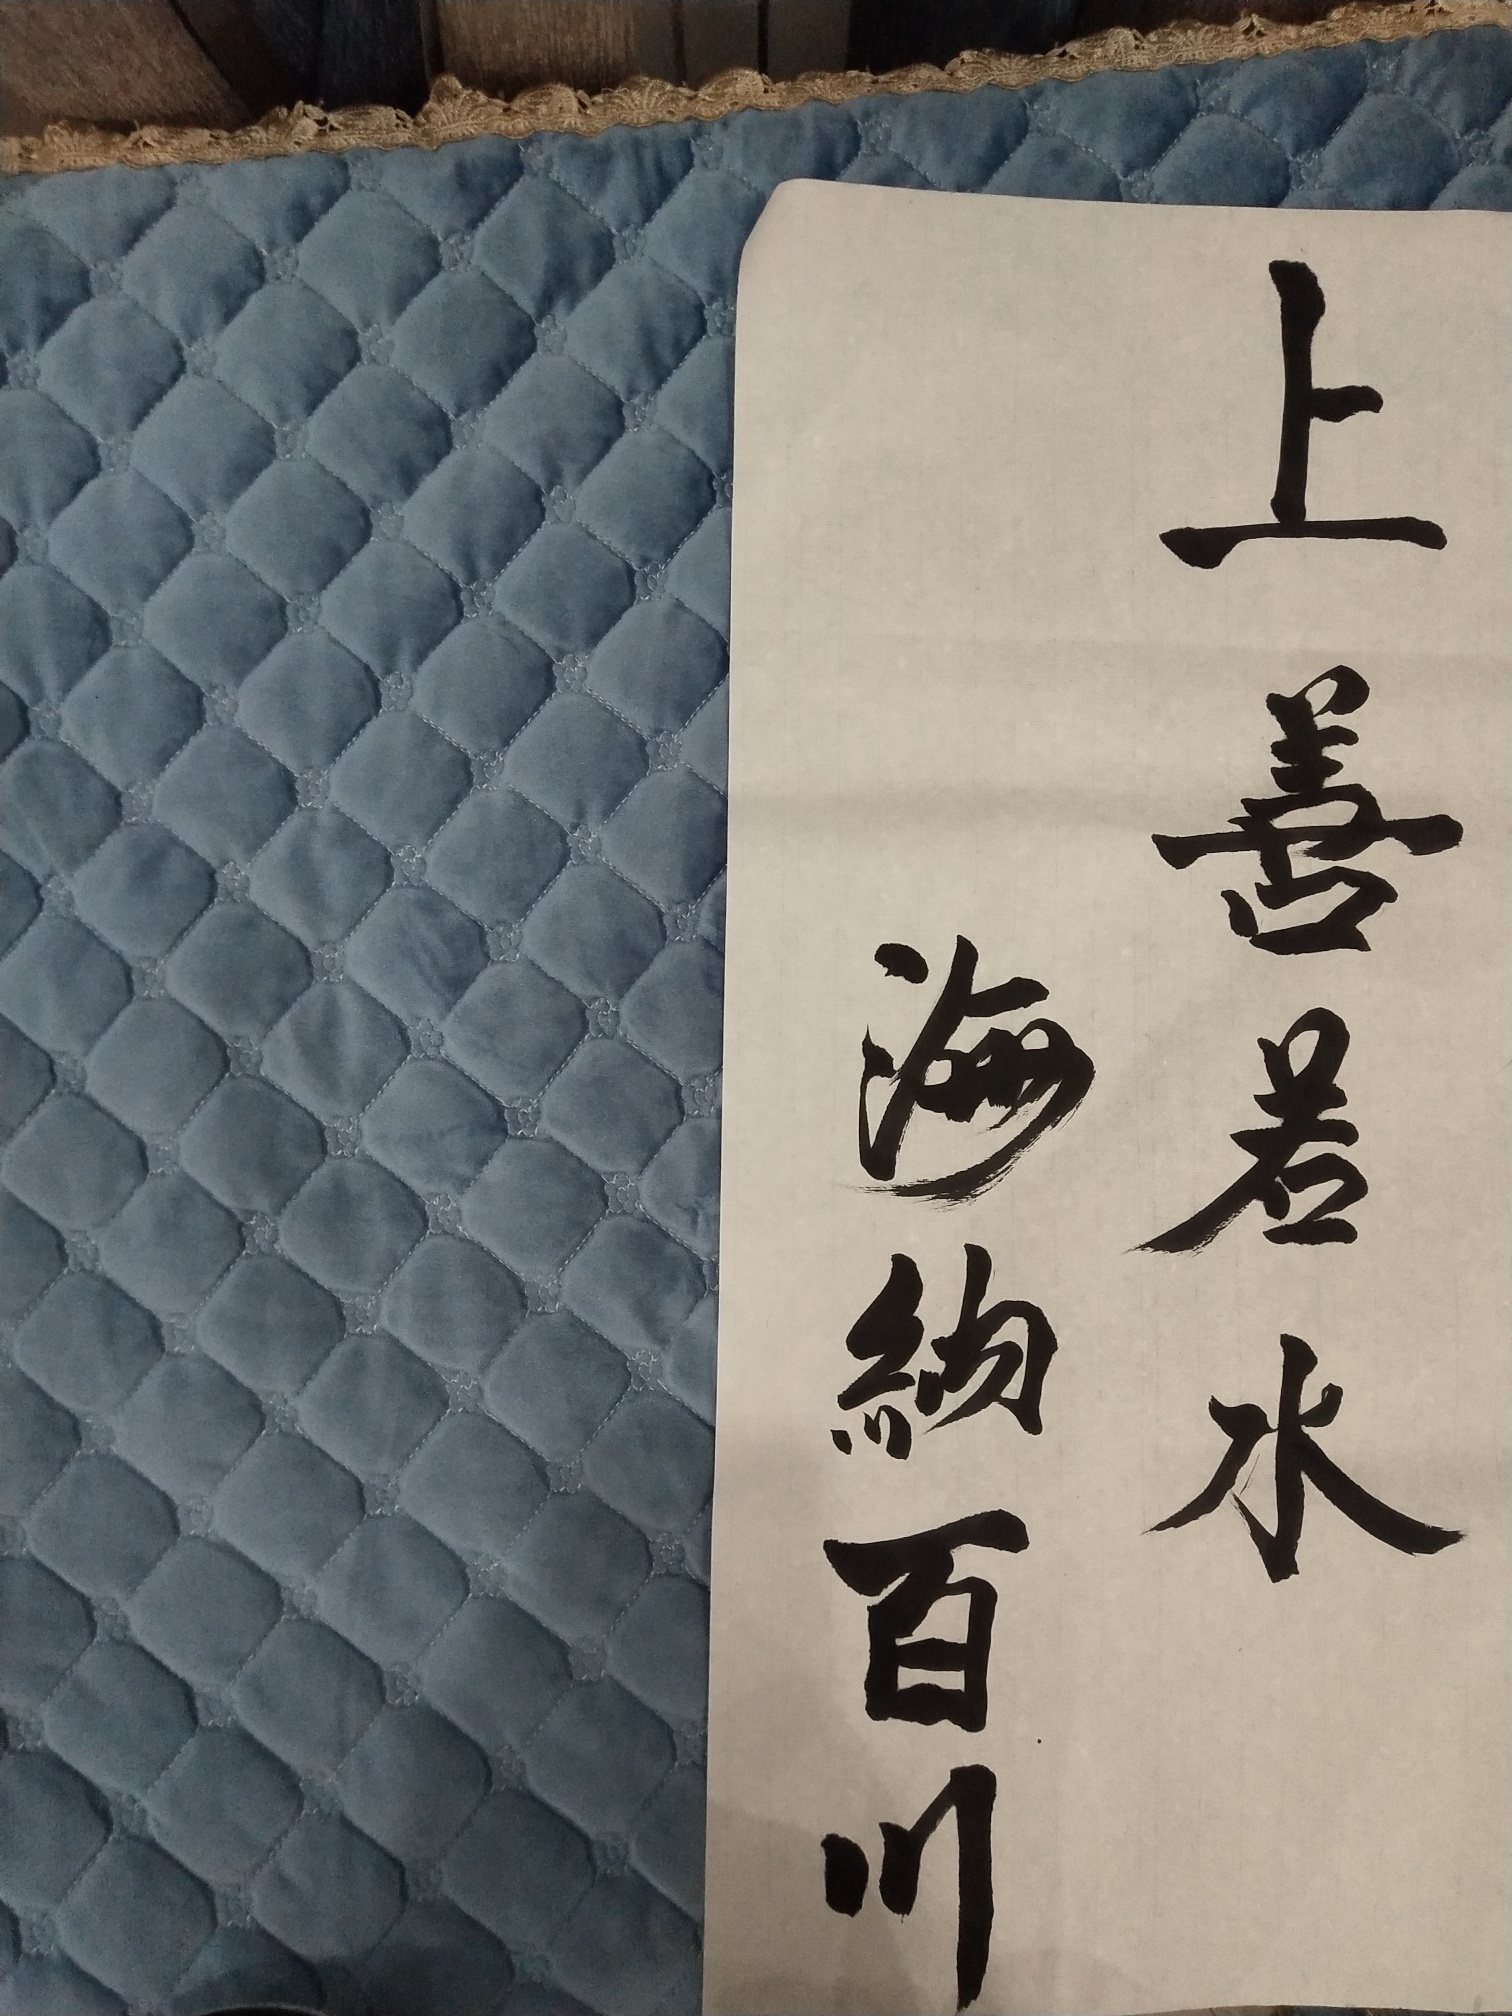 上善若水
海納百川